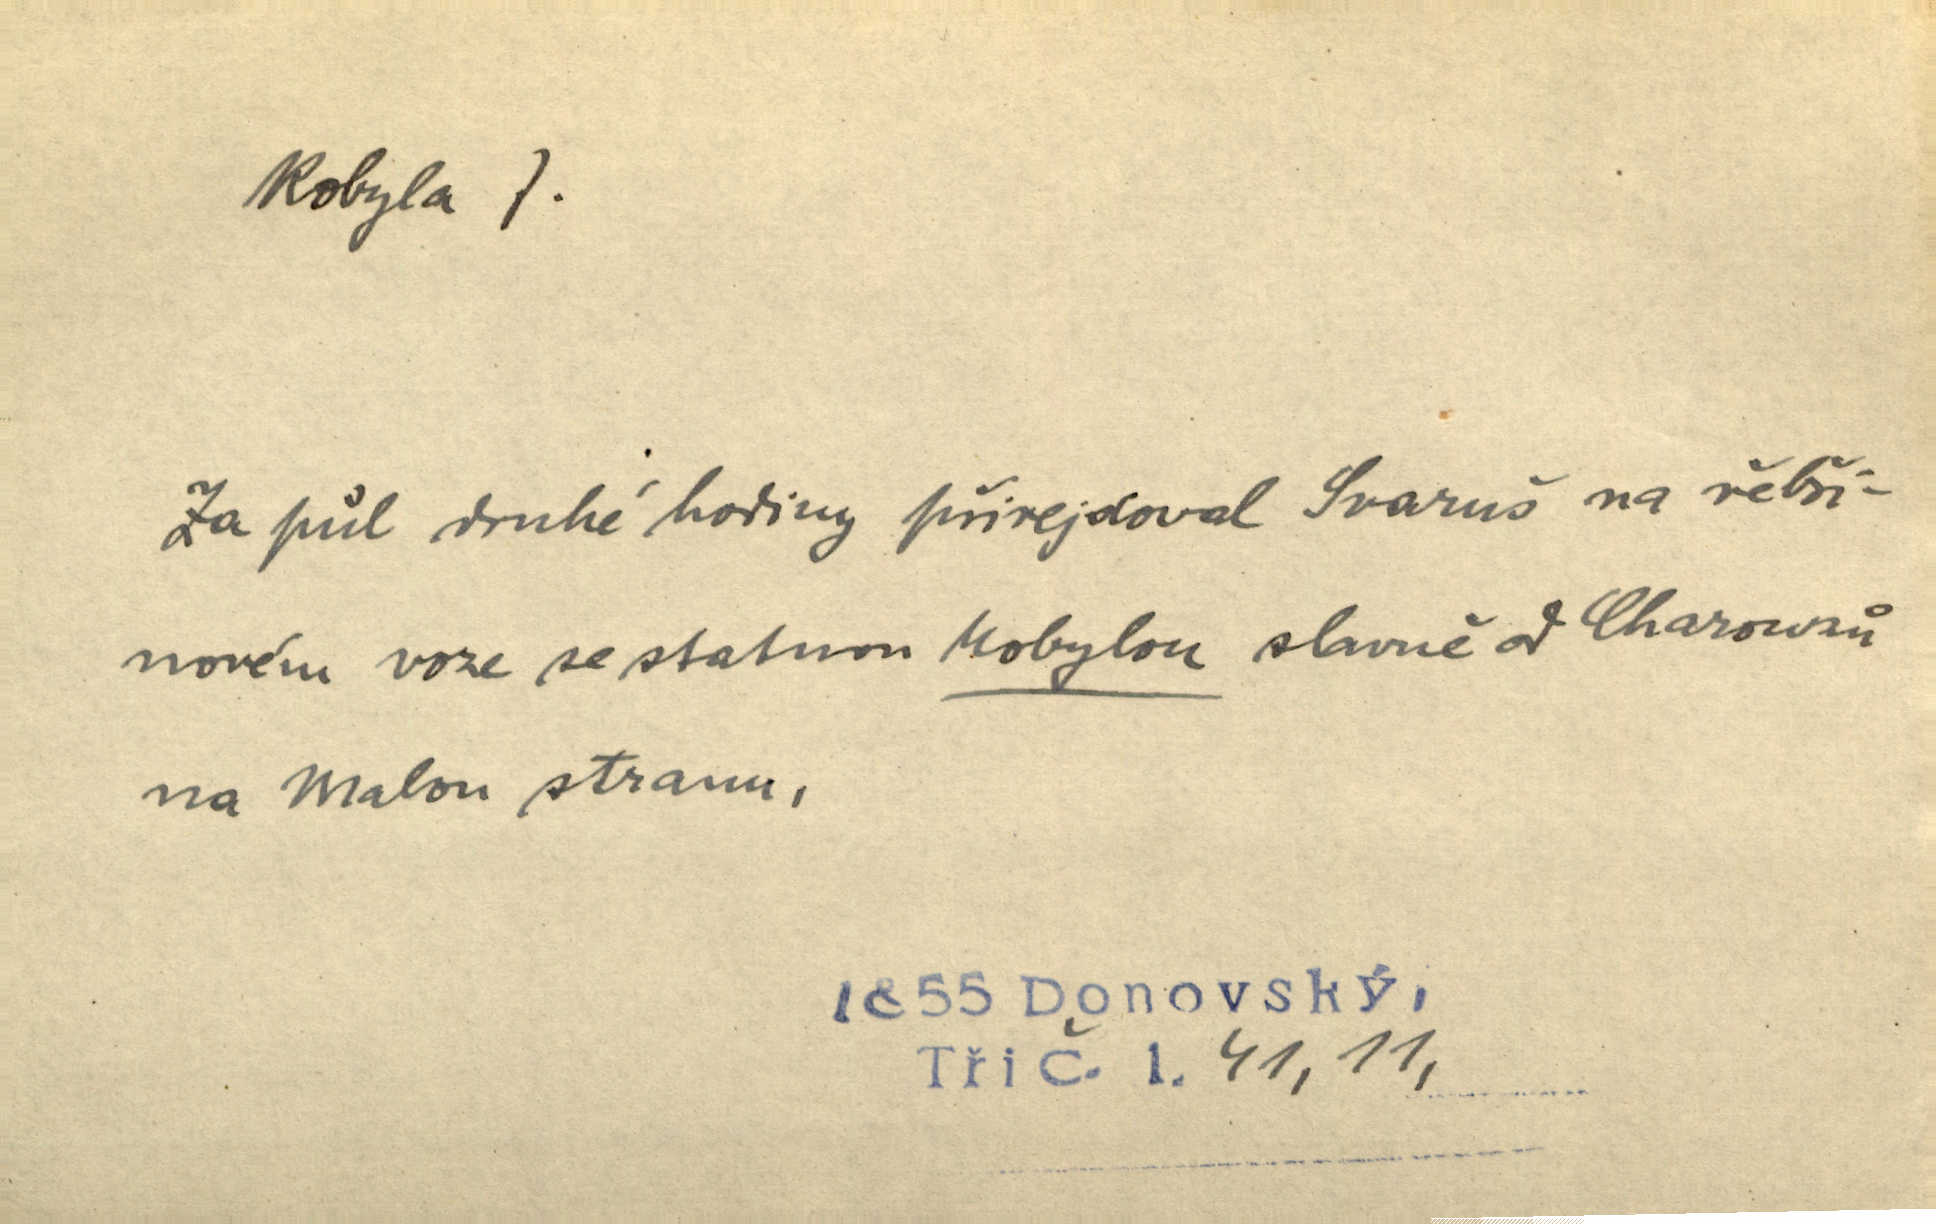 Kobyla f.
Za půl druhé hodiny přirejdoval Svaruš na žebři-
novém voze se statnou kobylou slavně od Charouzů
na Malou stranu,
1855 Donovský,
Tři Č. 1. 41, 11,